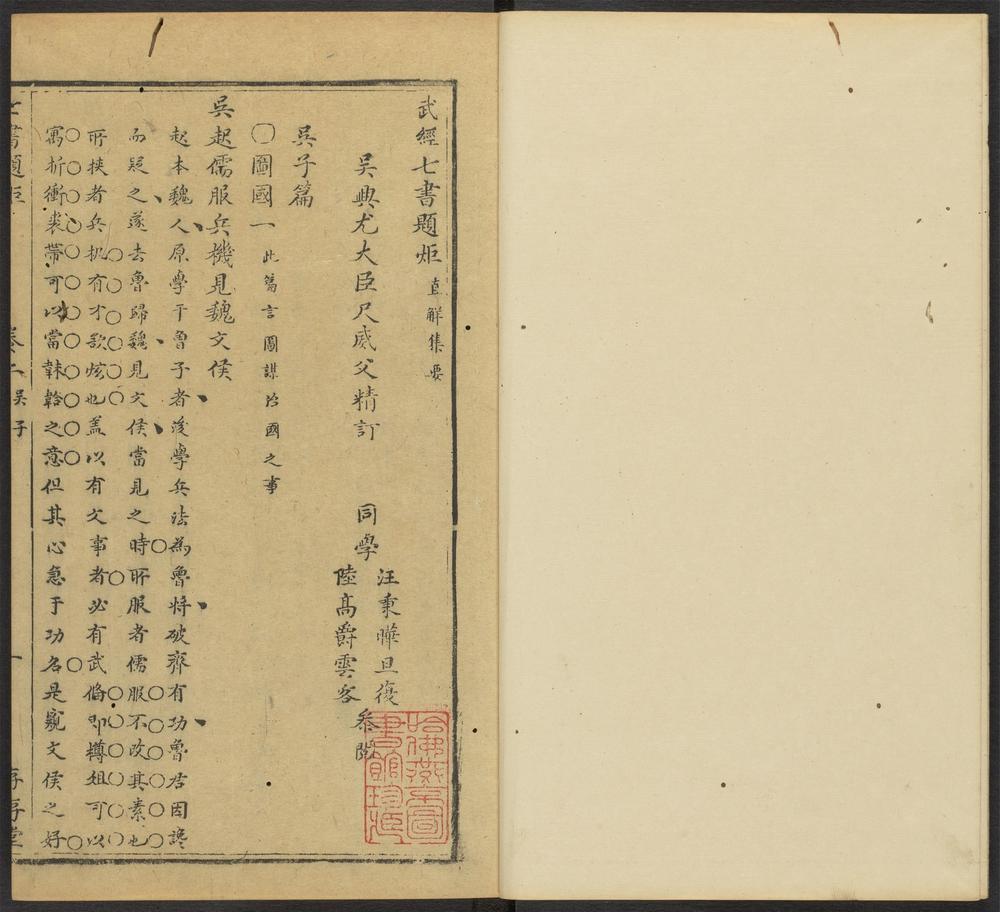 武經七書題炬 直解集要
吳興尤大臣尺威父精訂 同學
汪秉曄旦復
陸高爵雲客
參閱
吳子篇
○圖國一 此篇言圖謀治國之事
吳起儒服兵機見魏文侯
起本魏人原學于魯子者後學兵法為魯將破齊有功魯君因讒
而疑之遂去魯歸魏見文侯當見之時所服者儒服不改其素也
所挾者兵机有才欲炫也盖以有文事者必有武俻即樽俎可以
寓折衝裘帶可以當韎韐之意但其心急于功名是窺文侯之好
七書題炬 卷二吳子 一 存存堂
哈佛燕京圖書館珍藏